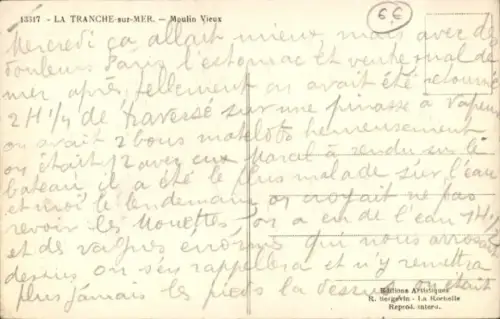 13317 - LA TRANCHE-sur-MER. - Moulin Vieux
6€
Mercredi ça allait mieux mais avec des
douleurs dans l'estomac et ventre mal de
mer après, tellement on avait été retourné
2H 1/4 de traversé sur une pinasse a vapeur
on avait 2 bons matelots heureusement
on était 12 avec eux Marcel à rendu sur le
bateau, il a été le plus malade sur l'eau
et moi le lendemain on croyait ne pas
revoir les Mouettes on a eu de l'eau
et des vagues enormes qui nous arrosait
dessus on s'en rappellera et n'y remettra
plus jamais les pieds la dessus on était
Editions Artistiques
R. Bergevin - La Rochelle
Reprod. interd.